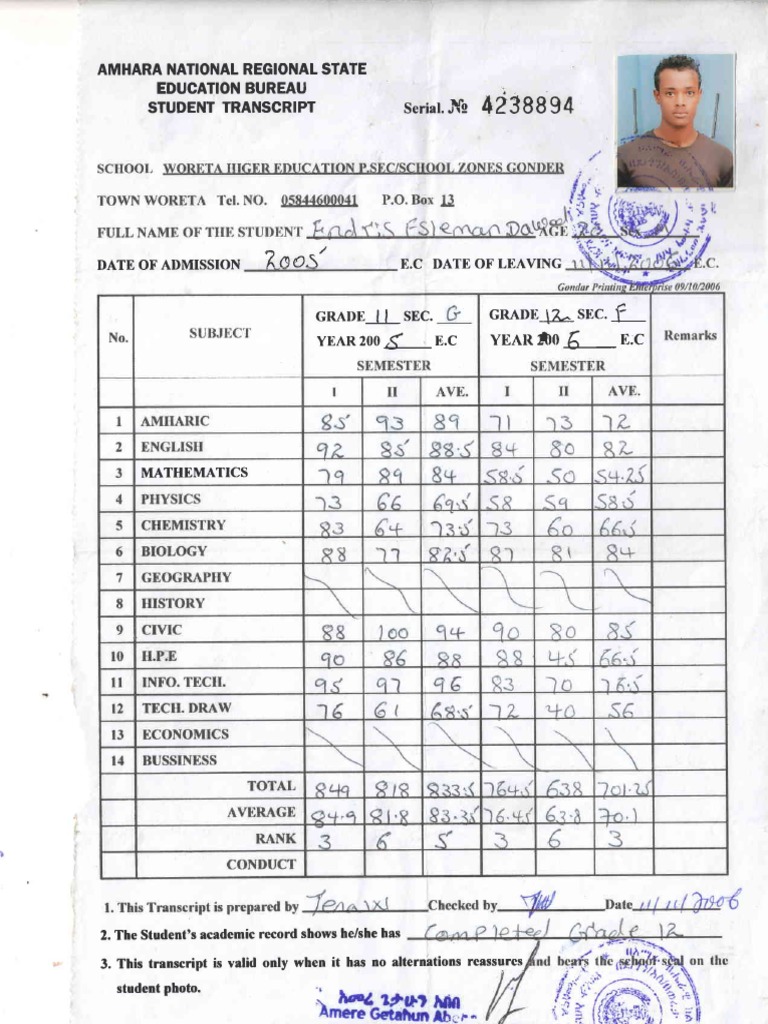 AMHARA NATIONAL REGIONAL STATE
EDUCATION BUREAU
STUDENT TRANSCRIPT Serial. № 4238894
SCHOOL WORETA HIGER EDUCATION P.SEC/SCHOOL ZONES GONDER
TOWN WORETA Tel. NO. 05844600041 P.O. Box 13
FULL NAME OF THE STUDENT Endris Esleman Dawood AGE SEX
DATE OF ADMISSION 2005 E.C DATE OF LEAVING E.C.
Gondar Printing Enterprise 09/10/2006
No. SUBJECT GRADE 11 SEC. G GRADE 12 SEC. F Remarks
YEAR 200 5 E.C YEAR 200 6 E.C
SEMESTER SEMESTER
I II AVE. I II AVE.
1 AMHARIC 85 93 89 71 73 72
2 ENGLISH 92 85 88.5 84 80 82
3 MATHEMATICS 79 89 84 58.5 50 54.25
4 PHYSICS 73 66 69.5 58 59 58.5
5 CHEMISTRY 83 64 73.5 73 60 66.5
6 BIOLOGY 88 77 82.5 87 81 84
7 GEOGRAPHY
8 HISTORY
9 CIVIC 88 100 94 90 80 85
10 H.P.E 90 86 88 88 45 66.5
11 INFO. TECH. 95 97 96 83 70 76.5
12 TECH. DRAW 76 61 68.5 72 40 56
13 ECONOMICS
14 BUSSINESS
TOTAL 849 818 833.5 764.5 638 701.25
AVERAGE 84.9 81.8 83.35 76.45 63.8 70.1
RANK 3 6 5 3 6 3
CONDUCT
1. This Transcript is prepared by Checked by Date 11/11/2006
2. The Student's academic record shows he/she has Completed Grade 12
3. This transcript is valid only when it has no alternations reassures and bears the school seal on the
student photo.
አመሬ ጌታሁን አበበ
Amere Getahun